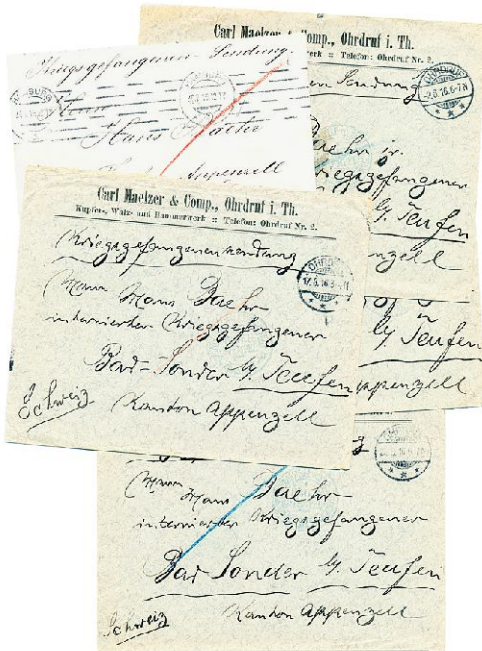 Carl Maelzer & Comp., Ohrdruf i. Th.
Telefon: Ohrdruf Nr. 2.
Sendung
OHRDRUF
-2.6.16.6-7N
Baehr
Kriegsgefangener
b/ Teufen
Appenzell
b/ Teufen
Appenzell
Kriegsgefangenen-Sendung.
Herrn
Hans Baehr
Appenzell
Carl Maelzer & Comp., Ohrdruf i. Th.
Kupfer-, Walz- und Hammerwerk = Telefon: Ohrdruf Nr. 2.
Kriegsgefangenensendung
OHRDRUF
Herrn Hans Baehr
internierter Kriegsgefangener
Bad-Sonder b/ Teufen
Schweiz
Kanton Appenzell
Herrn Hans Baehr
internierter Kriegsgefangener
Bad Sonder b/ Teufen
Schweiz
Kanton Appenzell